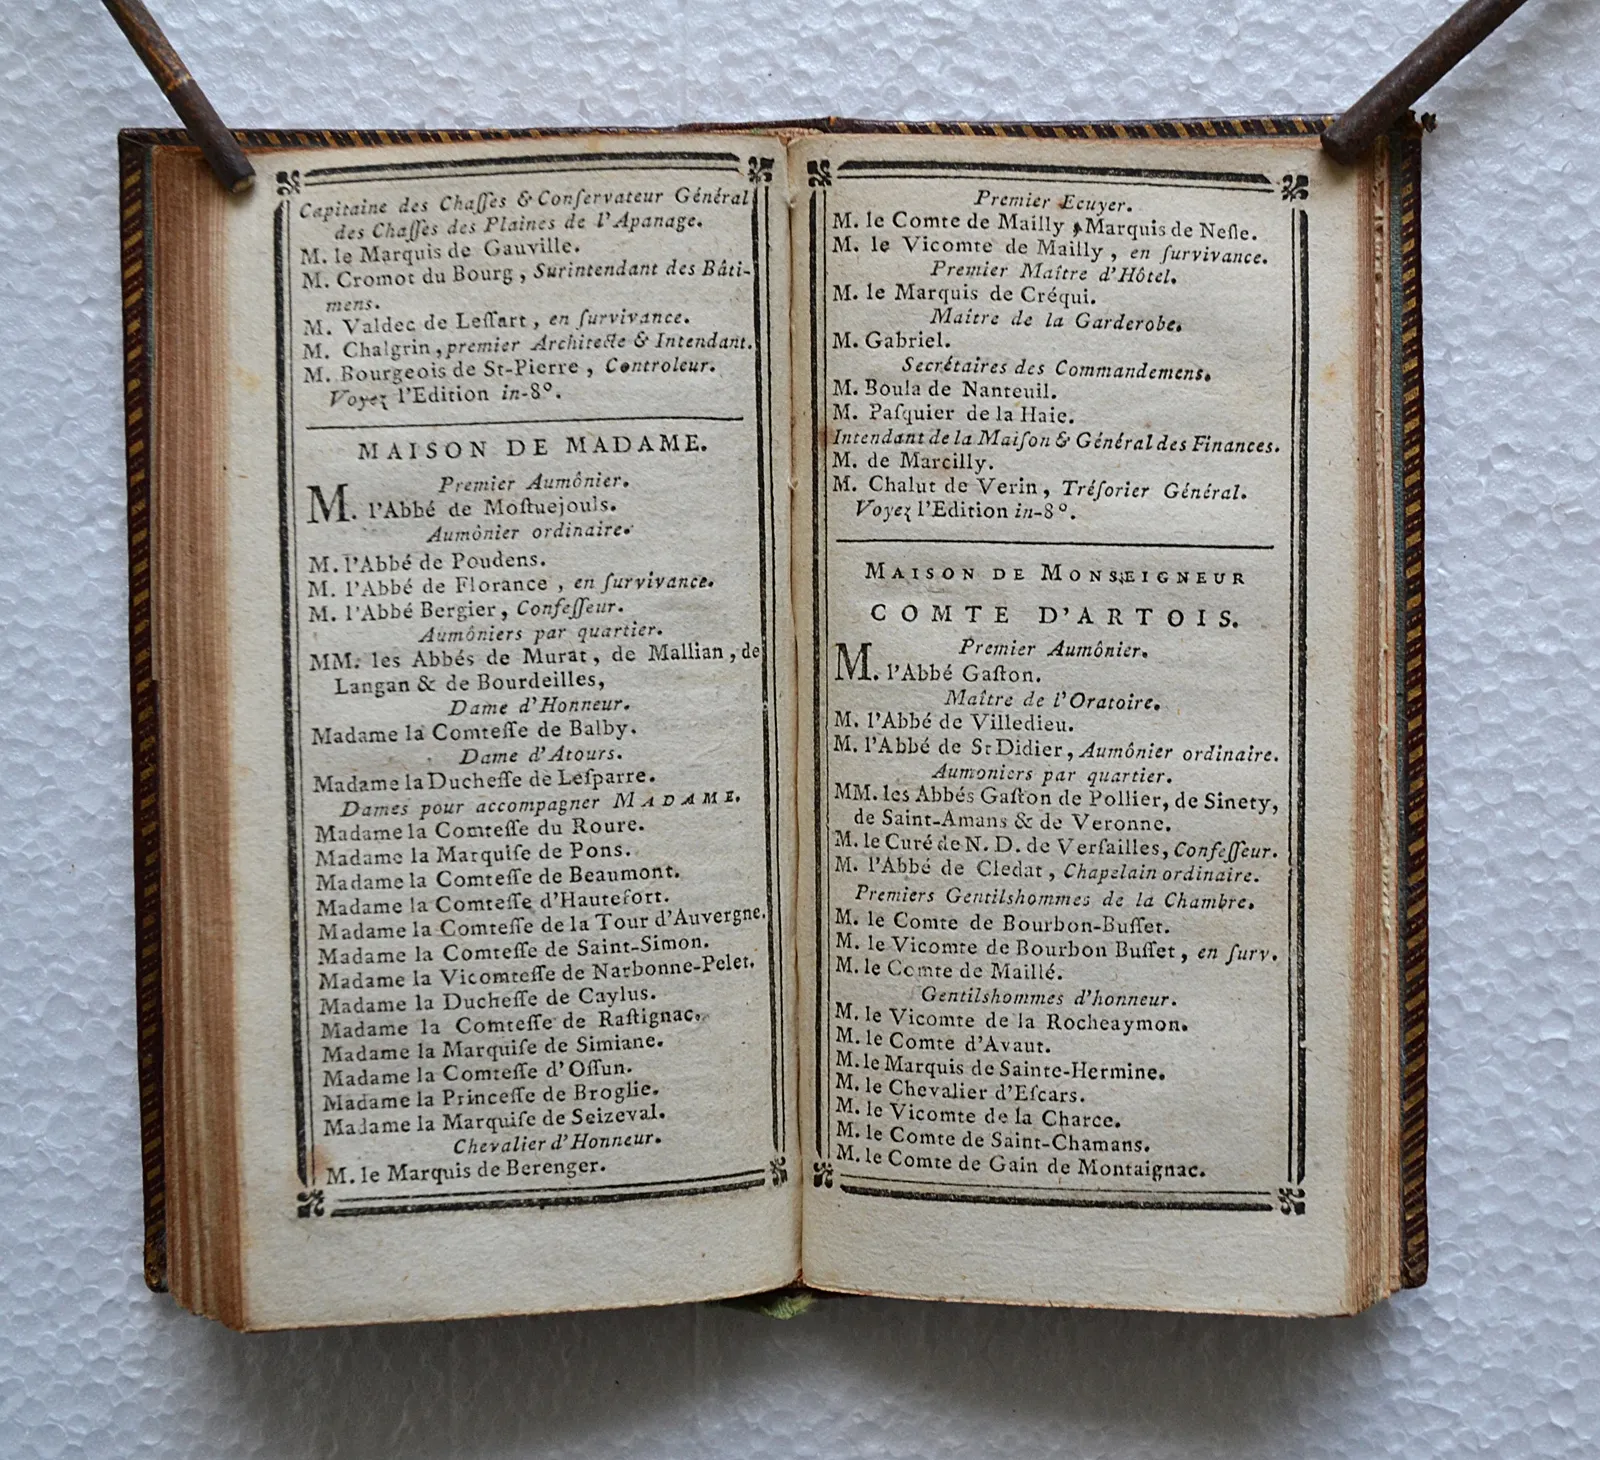 Capitaine des Chaſſes & Conſervateur Général
des Chaſſes des Plaines de l'Apanage.
M. le Marquis de Gauville.
M. Cromot du Bourg, Surintendant des Bâti-
mens.
M. Valdec de Leſſart, en ſurvivance.
M. Chalgrin, premier Architecte & Intendant.
M. Bourgeois de St-Pierre, Controleur.
Voyez l'Edition in-8°.
MAISON DE MADAME.
Premier Aumônier.
M. l'Abbé de Moſtuejouls.
Aumônier ordinaire.
M. l'Abbé de Poudens.
M. l'Abbé de Florance, en ſurvivance.
M. l'Abbé Bergier, Confeſſeur.
Aumôniers par quartier.
MM. les Abbés de Murat, de Mallian, de
Langan & de Bourdeilles,
Dame d'Honneur.
Madame la Comteſſe de Balby.
Dame d'Atours.
Madame la Ducheſſe de Leſparre.
Dames pour accompagner MADAME.
Madame la Comteſſe du Roure.
Madame la Marquiſe de Pons.
Madame la Comteſſe de Beaumont.
Madame la Comteſſe d'Hautefort.
Madame la Comteſſe de la Tour d'Auvergne.
Madame la Comteſſe de Saint-Simon.
Madame la Vicomteſſe de Narbonne-Pelet.
Madame la Ducheſſe de Caylus.
Madame la Comteſſe de Raſtignac.
Madame la Marquiſe de Simiane.
Madame la Comteſſe d'Oſſun.
Madame la Princeſſe de Broglie.
Madame la Marquiſe de Seizeval.
Chevalier d'Honneur.
M. le Marquis de Berenger.
Premier Ecuyer.
M. le Comte de Mailly, Marquis de Neſle.
M. le Vicomte de Mailly, en ſurvivance.
Premier Maître d'Hôtel.
M. le Marquis de Créqui.
Maître de la Garderobe.
M. Gabriel.
Secrétaires des Commandemens.
M. Boula de Nanteuil.
M. Paſquier de la Haie.
Intendant de la Maiſon & Général des Finances.
M. de Marcilly.
M. Chalut de Verin, Tréſorier Général.
Voyez l'Edition in-8°.
MAISON DE MONSEIGNEUR
COMTE D'ARTOIS.
Premier Aumônier.
M. l'Abbé Gaſton.
Maître de l'Oratoire.
M. l'Abbé de Villedieu.
M. l'Abbé de St Didier, Aumônier ordinaire.
Aumoniers par quartier.
MM. les Abbés Gaſton de Pollier, de Sinety,
de Saint-Amans & de Veronne.
M. le Curé de N. D. de Verſailles, Confeſſeur.
M. l'Abbé de Cledat, Chapelain ordinaire.
Premiers Gentilshommes de la Chambre.
M. le Comte de Bourbon-Buſſet.
M. le Vicomte de Bourbon Buſſet, en ſurv.
M. le Comte de Maillé.
Gentilshommes d'honneur.
M. le Vicomte de la Rocheaymon.
M. le Comte d'Avaut.
M. le Marquis de Sainte-Hermine.
M. le Chevalier d'Eſcars.
M. le Vicomte de la Charce.
M. le Comte de Saint-Chamans.
M. le Comte de Gain de Montaignac.